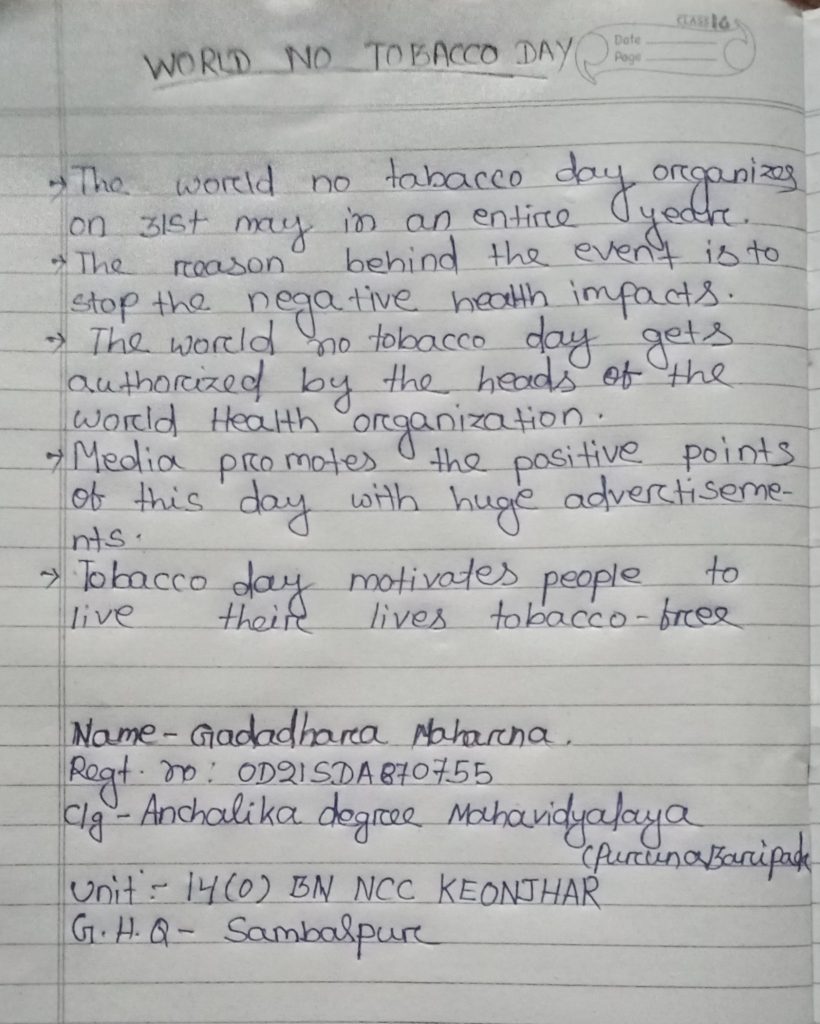 CLASS 16
WORLD NO TOBACCO DAY
Date
Page
→ The world no tabacco day organizes
on 31st may in an entire year.
→ The reason behind the event is to
stop the negative health impacts.
→ The world no tobacco day gets
authorized by the heads of the
World Health organization.
→ Media promotes the positive points
of this day with huge advertiseme-
nts.
→ Tobacco day motivates people to
live their lives tobacco-free
Name - Gadadhara Maharna.
Regt. no: OD21SDA870755
Clg - Anchalika degree Mahavidyalaya
(Puruna Baripada
Unit :- 14(O) BN NCC KEONJHAR
G.H.Q - Sambalpur